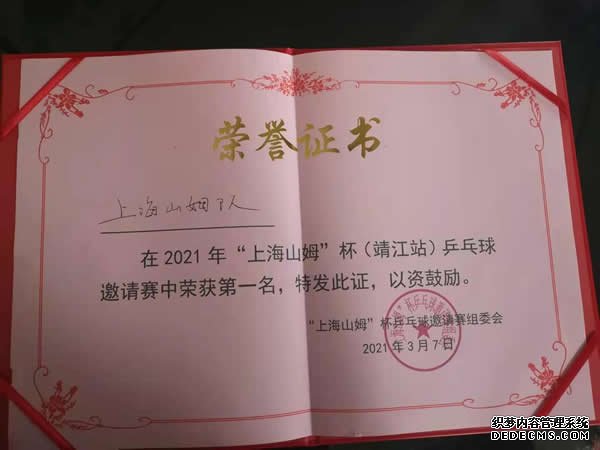 荣誉证书
上海山姆队
在2021年“上海山姆”杯（靖江站）乒乓球
邀请赛中荣获第一名，特发此证，以资鼓励。
“上海山姆”杯乒乓球邀请赛组委会
2021年3月7日
织梦内容管理系统
DEDECMS.COM